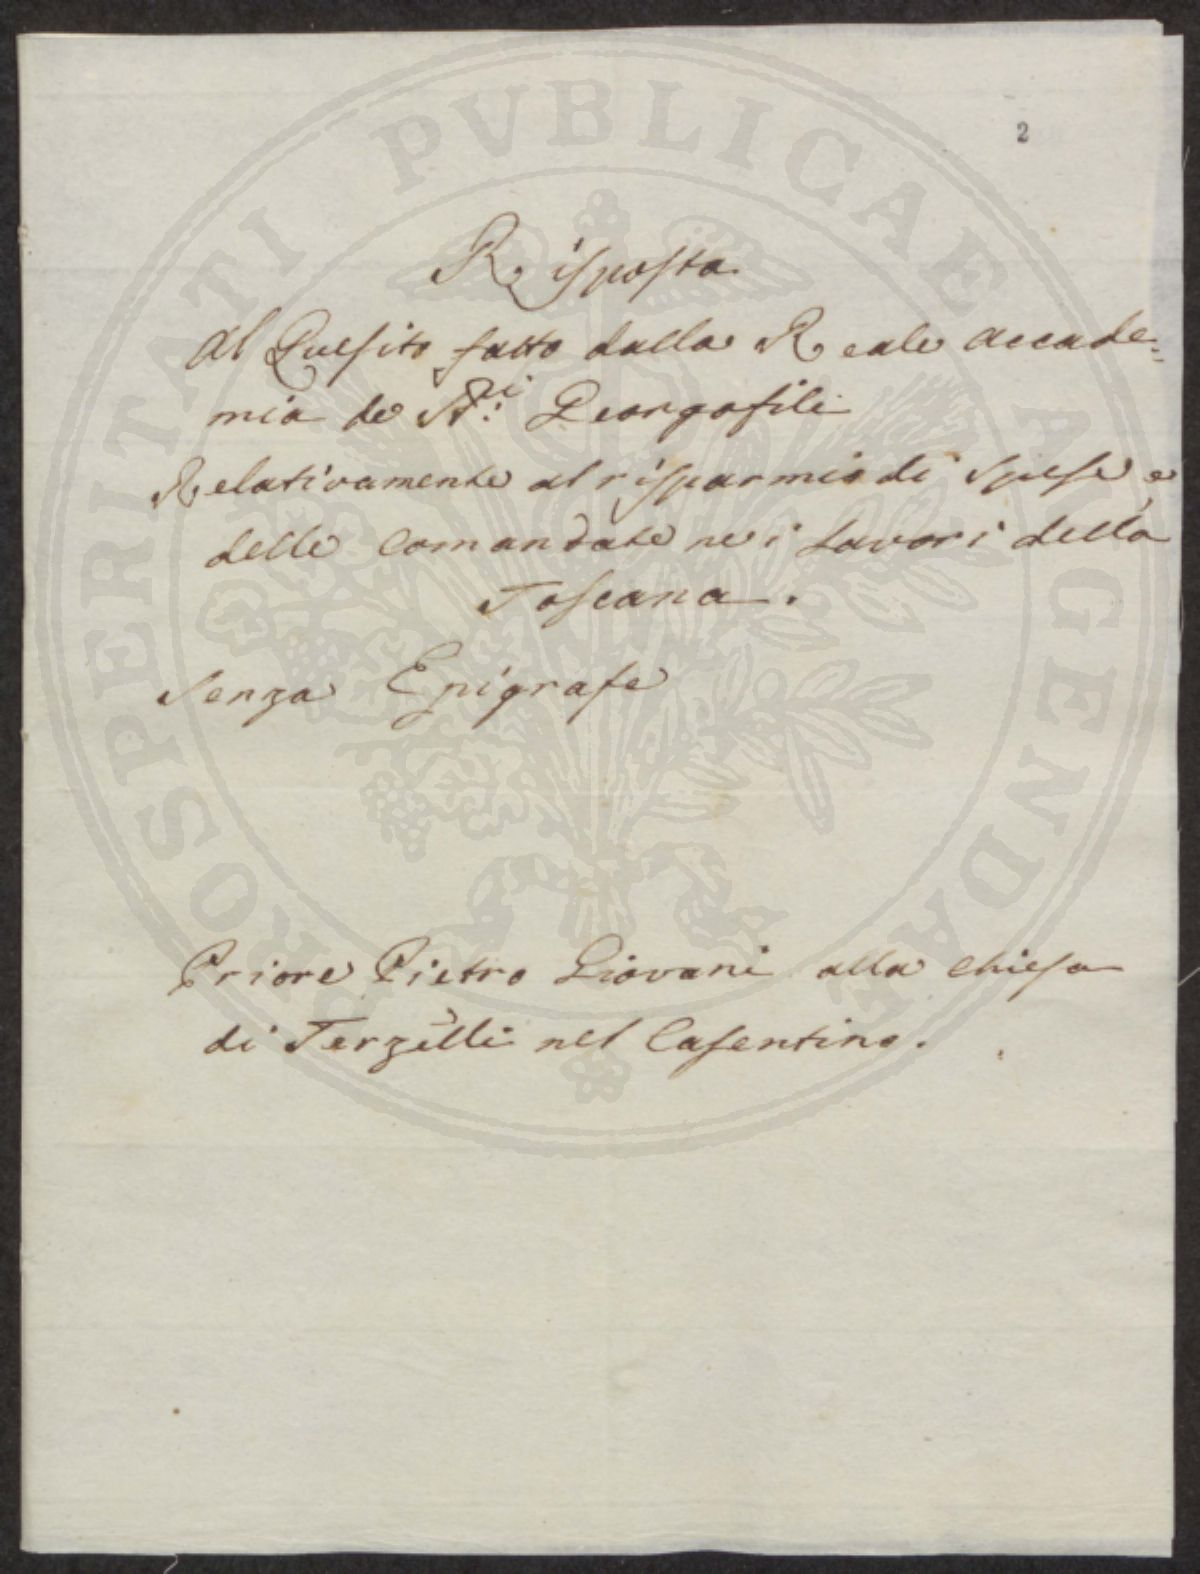 PROSPERITATI PVBLICAE AVGENDAE
2
Risposta
Al Quesito fatto dalla Reale Accade=
mia de Georgofili
Relativamente al risparmio di spese e
delle Comandate nei Lavori della
Toscana.
Senza Epigrafe
Priore Pietro Giovani alla Chiesa
di Terzelli nel Casentino.